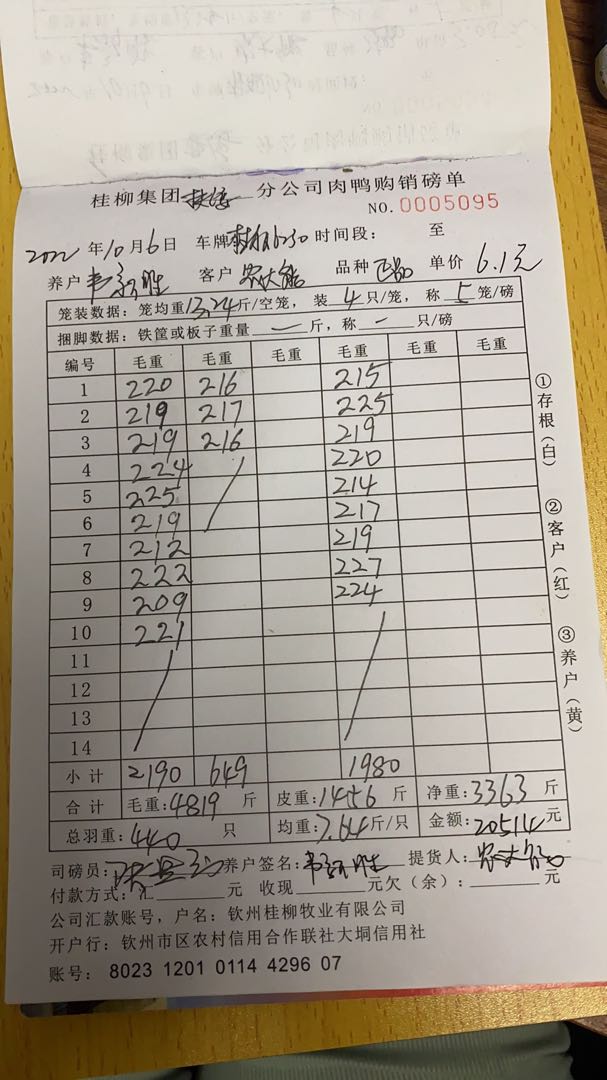 桂柳集团 分公司肉鸭购销磅单
NO.0005095
2022年10月6日 车牌 6230 时间段： 至
养户 韦 胜 客户 农 品种 正品 单价 6.1元
笼装数据：笼均重13.24斤/空笼，装4只/笼，称5笼/磅
捆脚数据：铁筐或板子重量一斤，称一只/磅
编号 毛重 毛重 毛重 毛重 毛重 毛重
1 220 216 215
2 219 217 225
3 219 216 219
4 224 220
5 225 214
6 219 217
7 212 219
8 222 227
9 209 224
10 221
11
12
13
14
小计 2190 649 1980
合计 毛重：4819斤 皮重：1456斤 净重：3363斤
总羽重：440只 均重：7.64斤/只 金额：20514元
司磅员： 养户签名：韦 胜 提货人：农
付款方式：汇 元 收现 元欠（余）： 元
公司汇款账号，户名：钦州桂柳牧业有限公司
开户行：钦州市区农村信用合作联社大垌信用社
账号：8023 1201 0114 4296 07
①存根（白）
②客户（红）
③养户（黄）